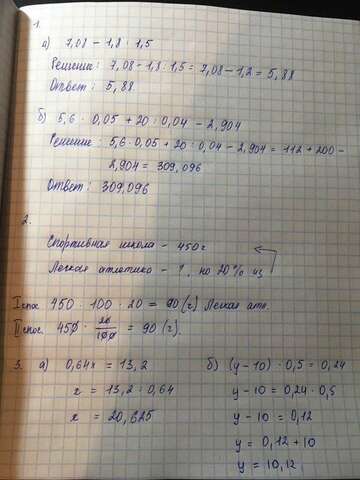 1.
а) 7,08 - 1,8 : 1,5
Решение: 7,08 - 1,8 : 1,5 = 7,08 - 1,2 = 5,88
Ответ: 5,88
б) 5,6 · 0,05 + 20 : 0,04 - 2,904
Решение: 5,6 · 0,05 + 20 : 0,04 - 2,904 = 112 + 200 -
2,904 = 309,096
Ответ: 309,096
2.
Спортивная школа - 450г
Легкая атлетика - ?, но 20% из
I спос. 450 · 100 · 20 = 90 (г) Легкая атл.
II спос. 450 · 20/100 = 90 (г).
3. а) 0,64x = 13,2
x = 13,2 : 0,64
x = 20,625
б) (y - 10) · 0,5 = 0,24
y - 10 = 0,24 · 0,5
y - 10 = 0,12
y = 0,12 + 10
y = 10,12